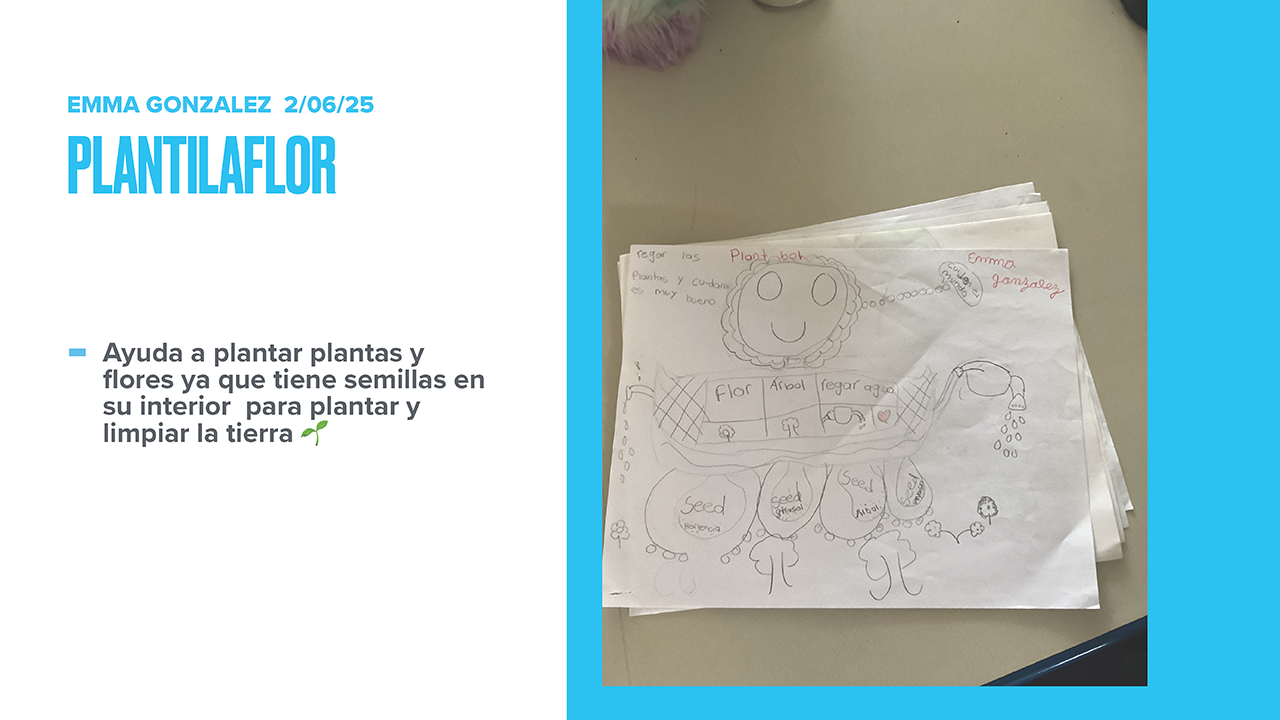 EMMA GONZALEZ 2/06/25
PLANTILAFLOR
Ayuda a plantar plantas y
flores ya que tiene semillas en
su interior para plantar y
limpiar la tierra
regar las
Plantas y cuidarla
es muy bueno
Plant bot
Emma
gonzalez
Flor
Arbol
regar agua
Seed
Hortencia
Seed
Seed
Arbol
Seed